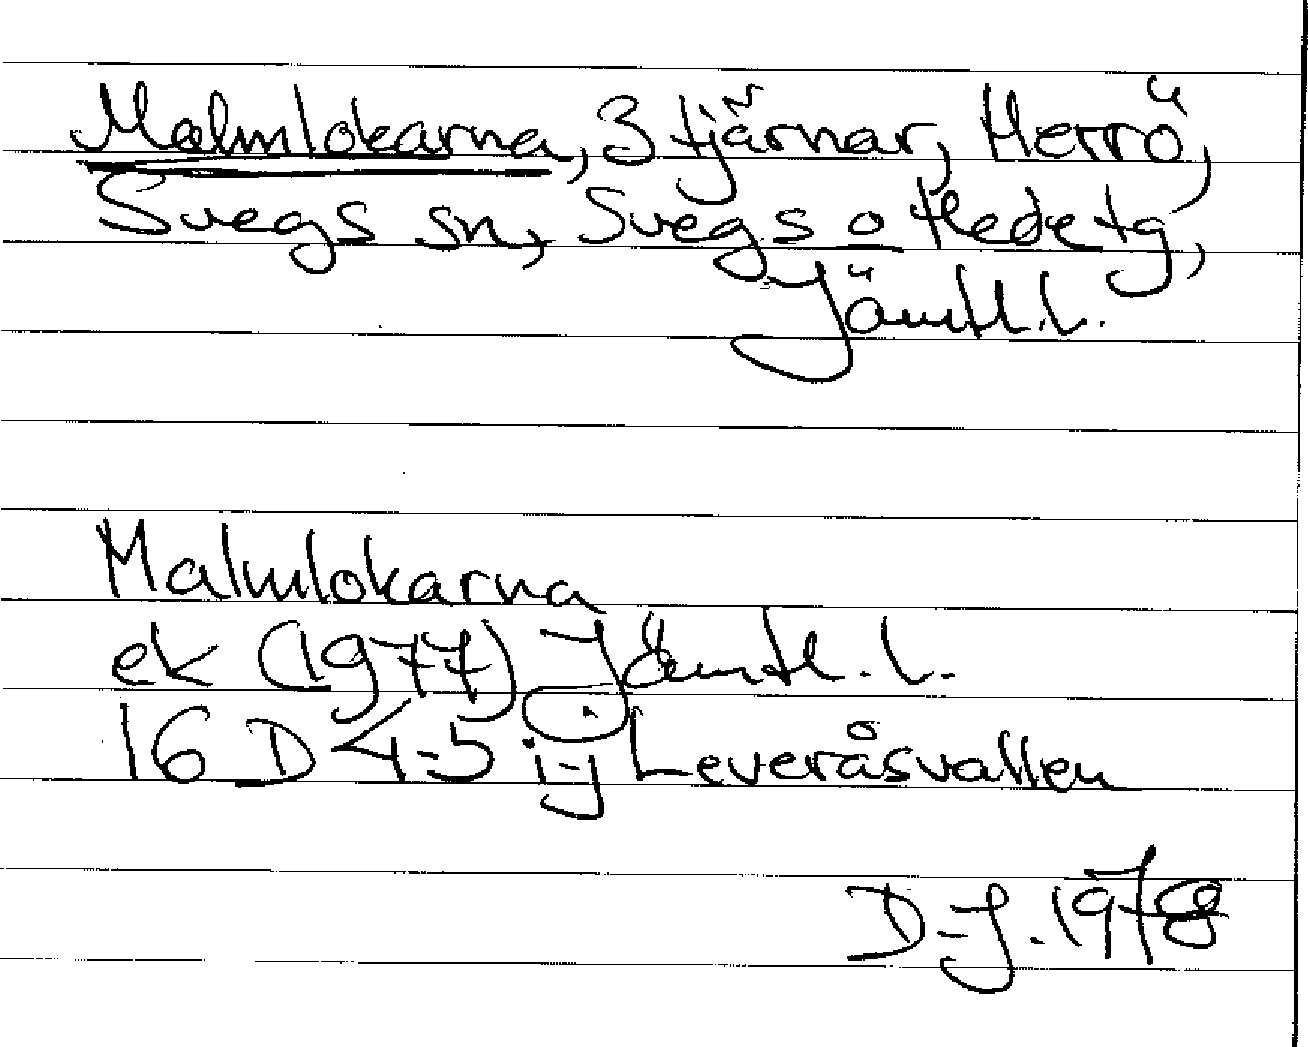 Malmlokarna, 3 tjärnar, Herrö,
Svegs sn, Svegs o Hede tg,
Jämtl.l.
Malmlokarna
ek (1977) Jämtl.l.
16 D 4-5 i-j Leveråsvallen
D-J. 1978